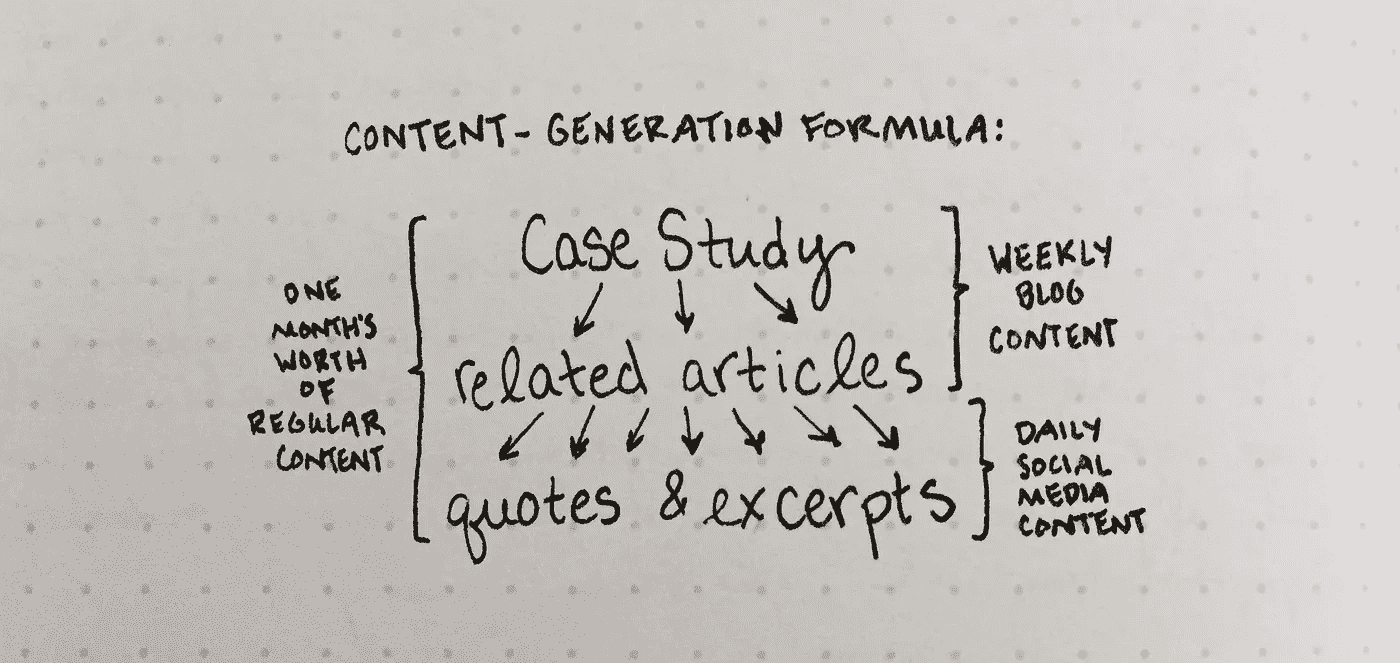 CONTENT-GENERATION FORMULA:
ONE
MONTH'S
WORTH
OF
REGULAR
CONTENT
Case Study
related articles
quotes & excerpts
WEEKLY
BLOG
CONTENT
DAILY
SOCIAL
MEDIA
CONTENT